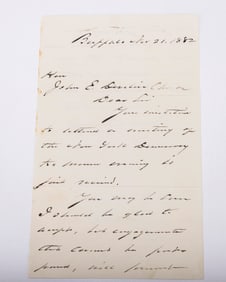 Buffalo Nov 21, 1882
Hon
John E. Develin
Dear Sir
Your invitation
to attend a meeting of
the New York Democracy
the
evening
just received.
You may be sure
I should be glad to
accept, but engagements
that cannot be post-
poned, will prevent